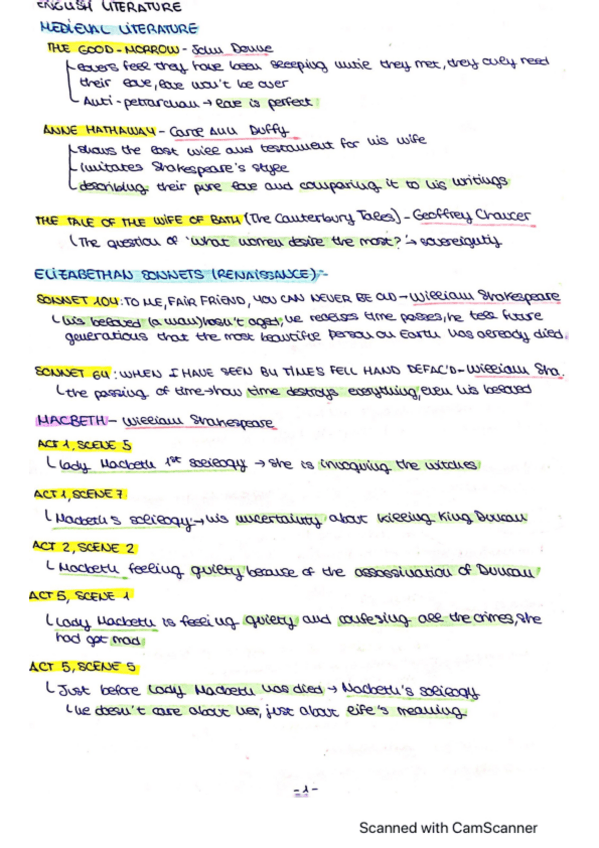 ENGLISH LITERATURE
MEDIEVAL LITERATURE
THE GOOD-MORROW - John Donne
Lovers feel they have been sleeping until they met, they only need
their love, love won't be over
Anti-petrarchan → love is perfect
ANNE HATHAWAY - Carol Ann Duffy
shows the last will and testament for his wife
imitates Shakespeare's style
describing their pure love and comparing it to his writings
THE TALE OF THE WIFE OF BATH (The Canterbury Tales) - Geoffrey Chaucer
The question of 'what women desire the most?' → sovereignty
ELIZABETHAN SONNETS (RENAISSANCE):-
SONNET 104: TO ME, FAIR FRIEND, YOU CAN NEVER BE OLD - William Shakespeare
his beloved (a man) hasn't aged, he realises time passes, he tells future
generations that the most beautiful person on Earth has already died.
SONNET 64: WHEN I HAVE SEEN BY TIMES FELL HAND DEFAC'D - William Sha.
the passing of time → how time destroys everything, even his beloved
MACBETH - William Shakespeare
ACT 1, SCENE 5
Lady Macbeth 1st soliloqy → she is invoquing the witches
ACT 1, SCENE 7
Macbeth's soliloqy → his uncertainty about killing King Duncan
ACT 2, SCENE 2
Macbeth feeling quiety because of the assassination of Duncan
ACT 5, SCENE 1
Lady Macbeth is feeling quiety and confesing all the crimes, she
had got mad
ACT 5, SCENE 5
Just before Lady Macbeth has died → Macbeth's soliloqy
he doesn't care about her, just about life's meaning.
-1-
Scanned with CamScanner